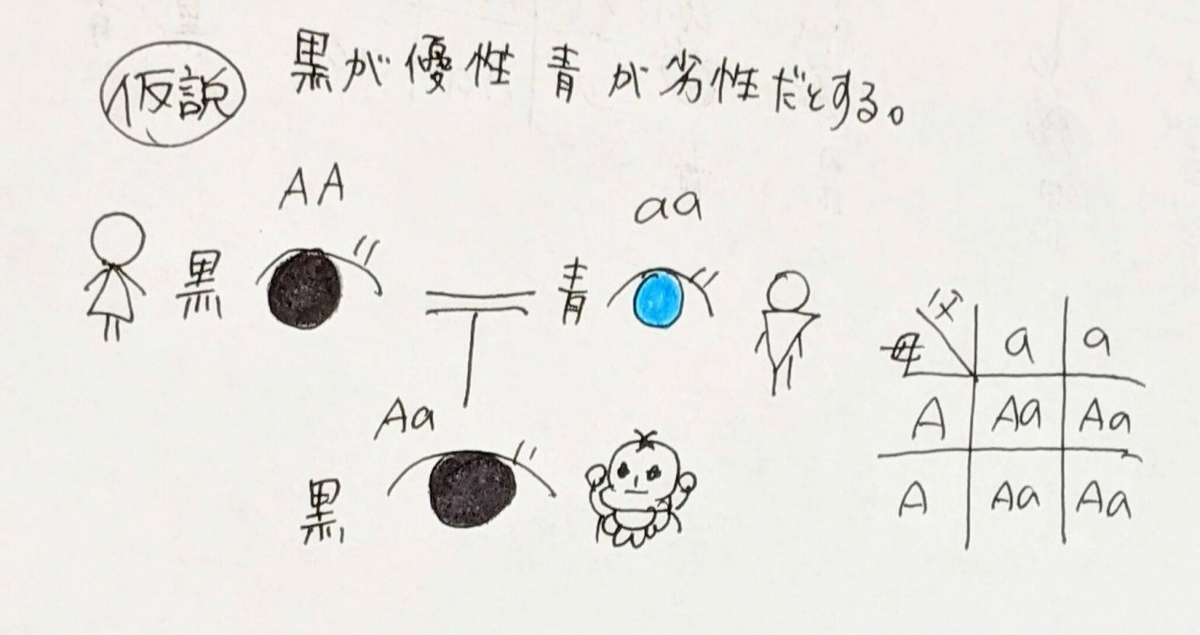 仮説 黒が優性 青が劣性だとする。
AA aa
黒 青
父
母 a a
A Aa Aa
A Aa Aa
Aa
黒